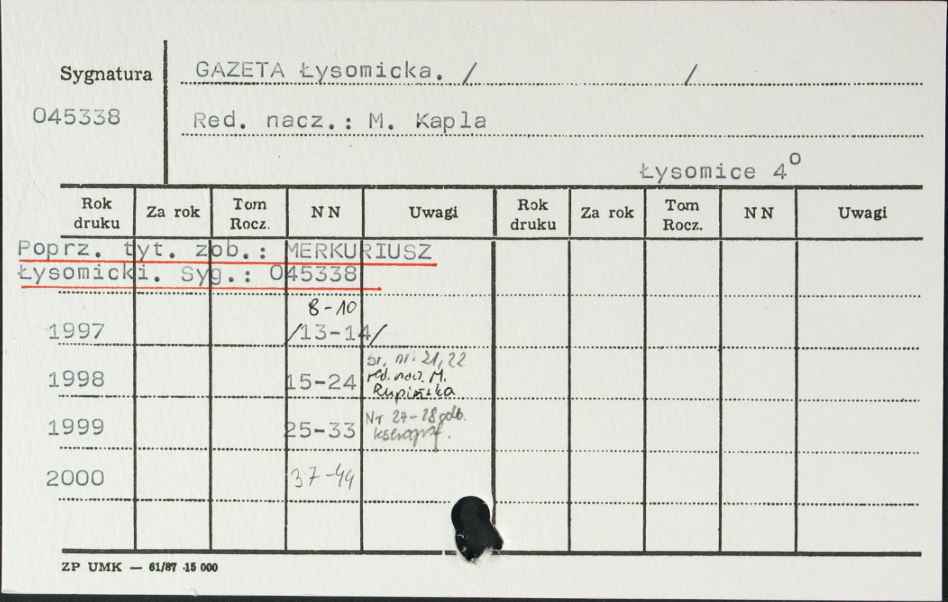 Sygnatura GAZETA Łysomicka. / /
045338 Red. nacz.: M. Kapla
Łysomice 4°
Rok druku Za rok Tom Rocz. NN Uwagi Rok druku Za rok Tom Rocz. NN Uwagi
Poprz. tyt. zob.: MERKURIUSZ
Łysomicki. Syg.: 045338
8-10
1997 /13-14/
nr. 21, 22
1998 15-24 red. nacz. M.
Rupińska
1999 25-33 Nr 27-28 odb.
kserogr.
2000 37-44
ZP UMK — 61/87 -15 000